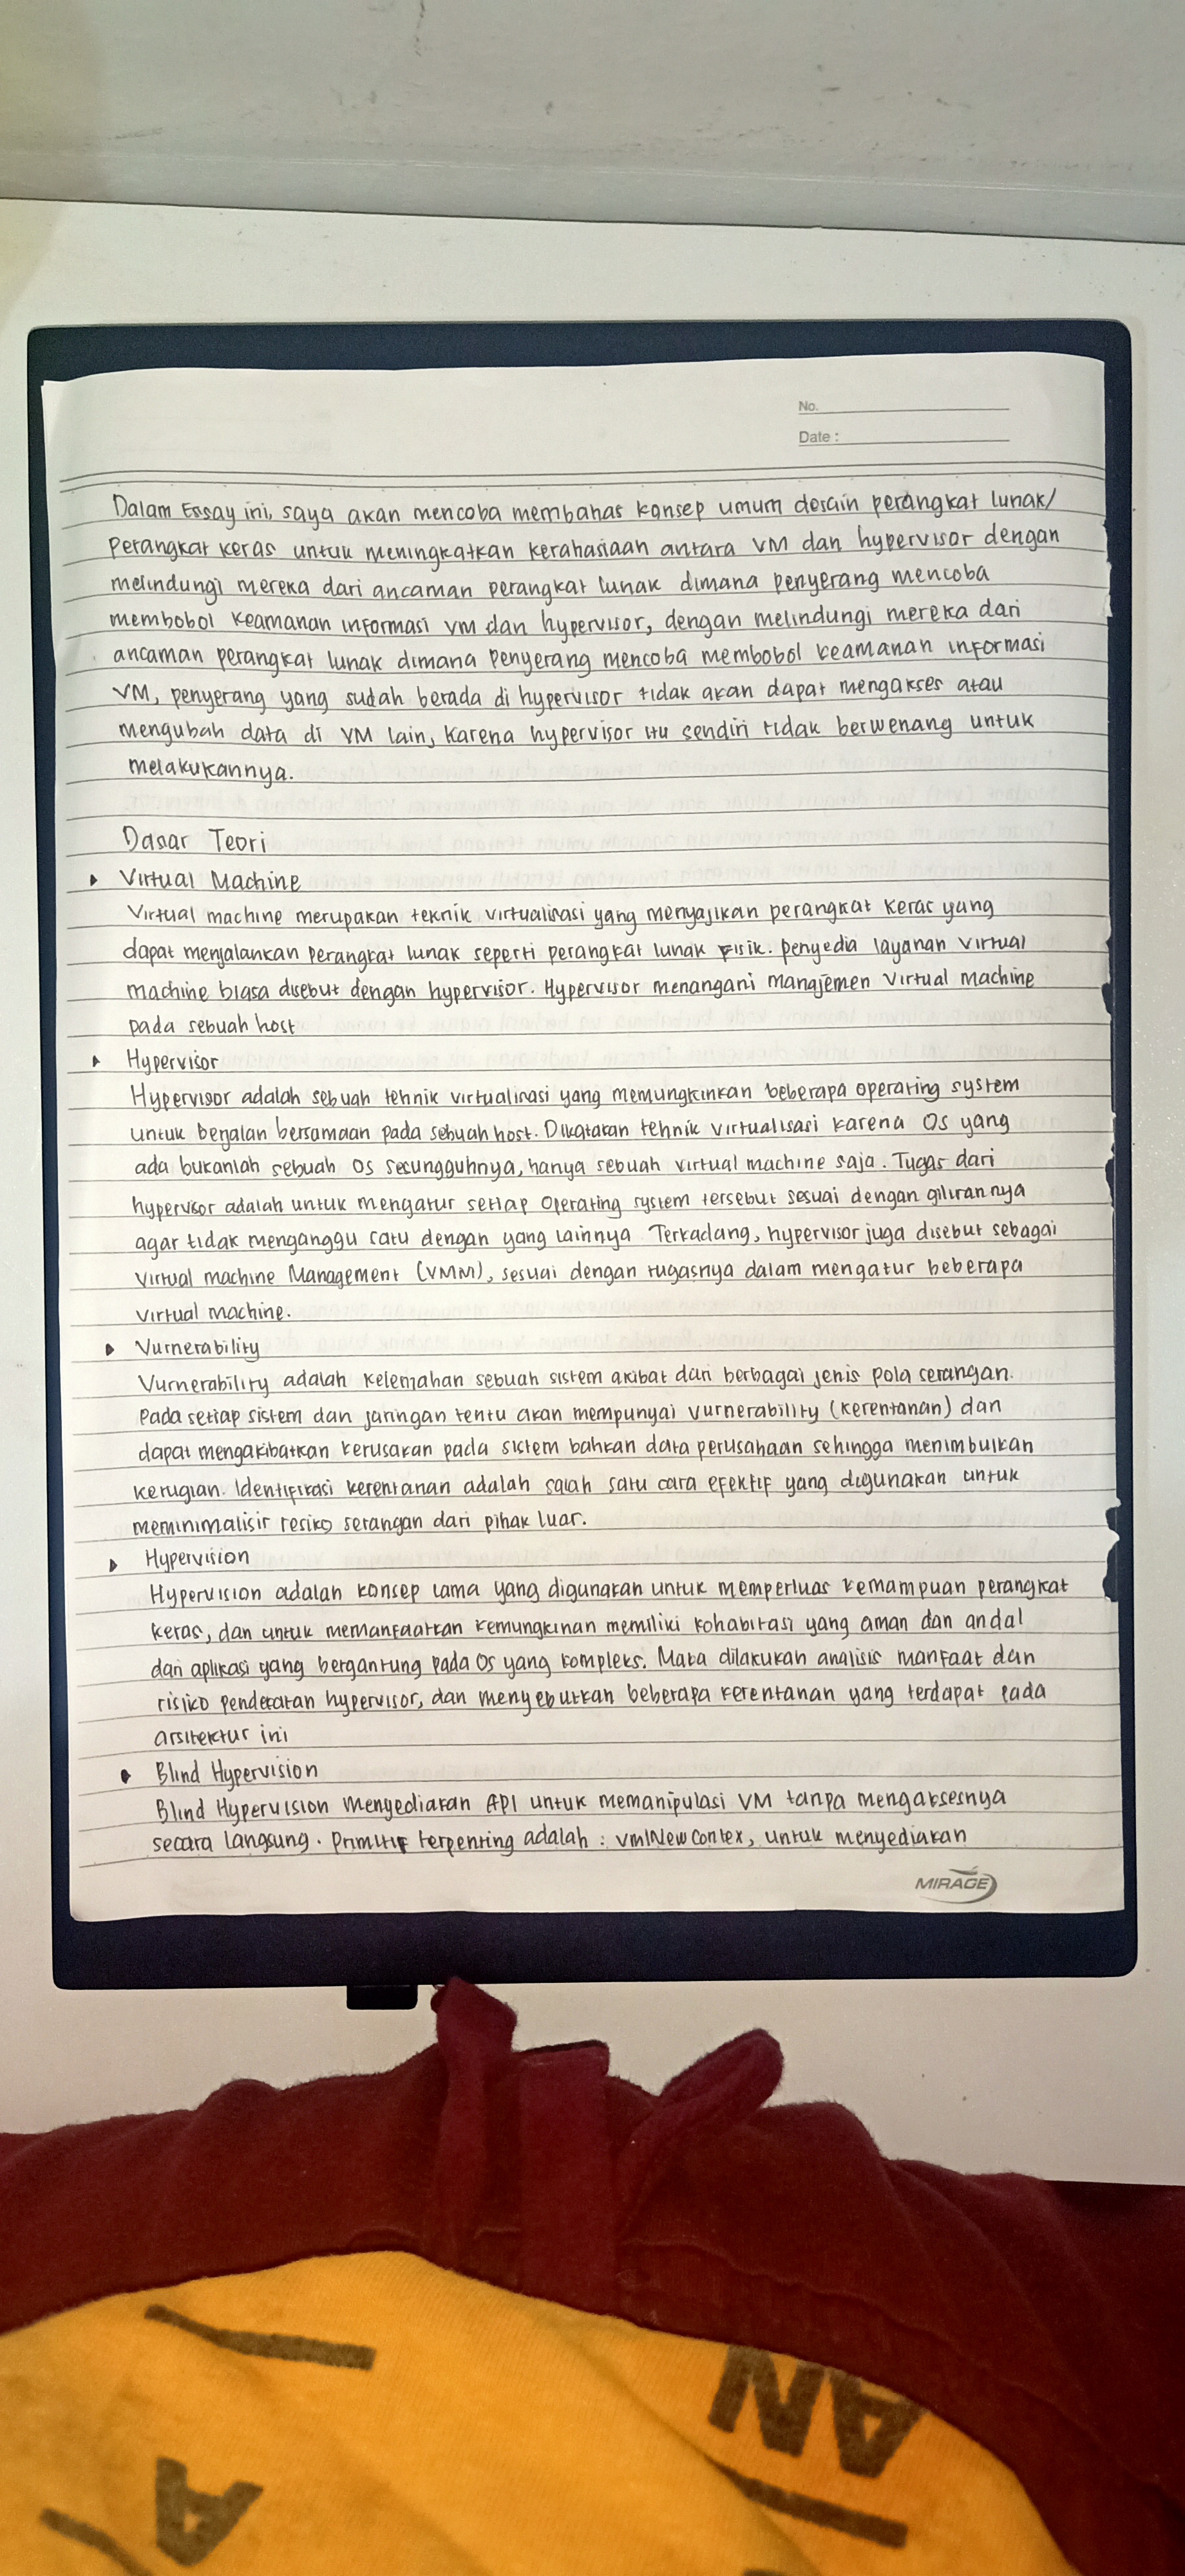 No.
Date :
Dalam Essay ini, saya akan mencoba membahas konsep umum desain perangkat lunak/
perangkat keras untuk meningkatkan kerahasiaan antara VM dan hypervisor dengan
melindungi mereka dari ancaman perangkat lunak dimana penyerang mencoba
membobol keamanan informasi VM dan hypervisor, dengan melindungi mereka dari
ancaman perangkat lunak dimana penyerang mencoba membobol keamanan informasi
VM, penyerang yang sudah berada di hypervisor tidak akan dapat mengakses atau
mengubah data di VM lain, karena hypervisor itu sendiri tidak berwenang untuk
melakukannya.
Dasar Teori
Virtual Machine
Virtual machine merupakan teknik virtualisasi yang menyajikan perangkat keras yang
dapat menjalankan perangkat lunak seperti perangkat lunak fisik. penyedia layanan virtual
machine biasa disebut dengan hypervisor. Hypervisor menangani manajemen virtual machine
pada sebuah host
Hypervisor
Hypervisor adalah sebuah tehnik virtualisasi yang memungkinkan beberapa operating system
untuk berjalan bersamaan pada sebuah host. Dikatakan tehnik virtualisasi karena OS yang
ada bukanlah sebuah OS sesungguhnya, hanya sebuah virtual machine saja. Tugas dari
hypervisor adalah untuk mengatur setiap operating system tersebut sesuai dengan gilirannya
agar tidak menganggu satu dengan yang lainnya Terkadang, hypervisor juga disebut sebagai
Virtual machine Management (VMM), sesuai dengan tugasnya dalam mengatur beberapa
virtual machine.
Vurnerability
Vurnerability adalah kelemahan sebuah sistem akibat dari berbagai jenis pola serangan.
Pada setiap sistem dan jaringan tentu akan mempunyai vurnerability (kerentanan) dan
dapat mengakibatkan kerusakan pada sistem bahkan data perusahaan sehingga menimbulkan
kerugian. Identifikasi kerentanan adalah salah satu cara efektif yang digunakan untuk
meminimalisir resiko serangan dari pihak luar.
Hypervision
Hypervision adalah konsep lama yang digunakan untuk memperluas kemampuan perangkat
keras, dan untuk memanfaatkan kemungkinan memiliki kohabitasi yang aman dan andal
dari aplikasi yang bergantung pada OS yang kompleks. Maka dilakukan analisis manfaat dan
risiko pendekatan hypervisor, dan menyebutkan beberapa kerentanan yang terdapat pada
arsitektur ini
Blind Hypervision
Blind Hypervision menyediakan API untuk memanipulasi VM tanpa mengaksesnya
secara langsung. Primitif terpenting adalah : vmlNewContex, untuk menyediakan
MIRAGE
AN
A